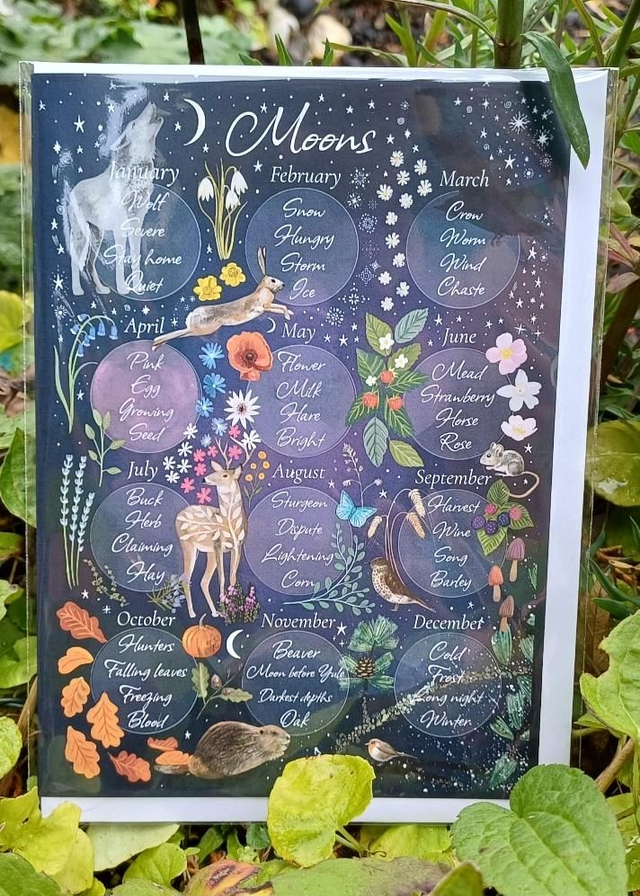 Moons
January
Wolf
Severe
Stay home
Quiet
February
Snow
Hungry
Storm
Ice
March
Crow
Worm
Wind
Chaste
April
Pink
Egg
Growing
Seed
May
Flower
Milk
Hare
Bright
June
Mead
Strawberry
Horse
Rose
July
Buck
Herb
Claiming
Hay
August
Sturgeon
Dispute
Lightening
Corn
September
Harvest
Wine
Song
Barley
October
Hunters
Falling leaves
Freezing
Blood
November
Beaver
Moon before Yule
Darkest depths
Oak
December
Cold
Frost
Long night
Winter